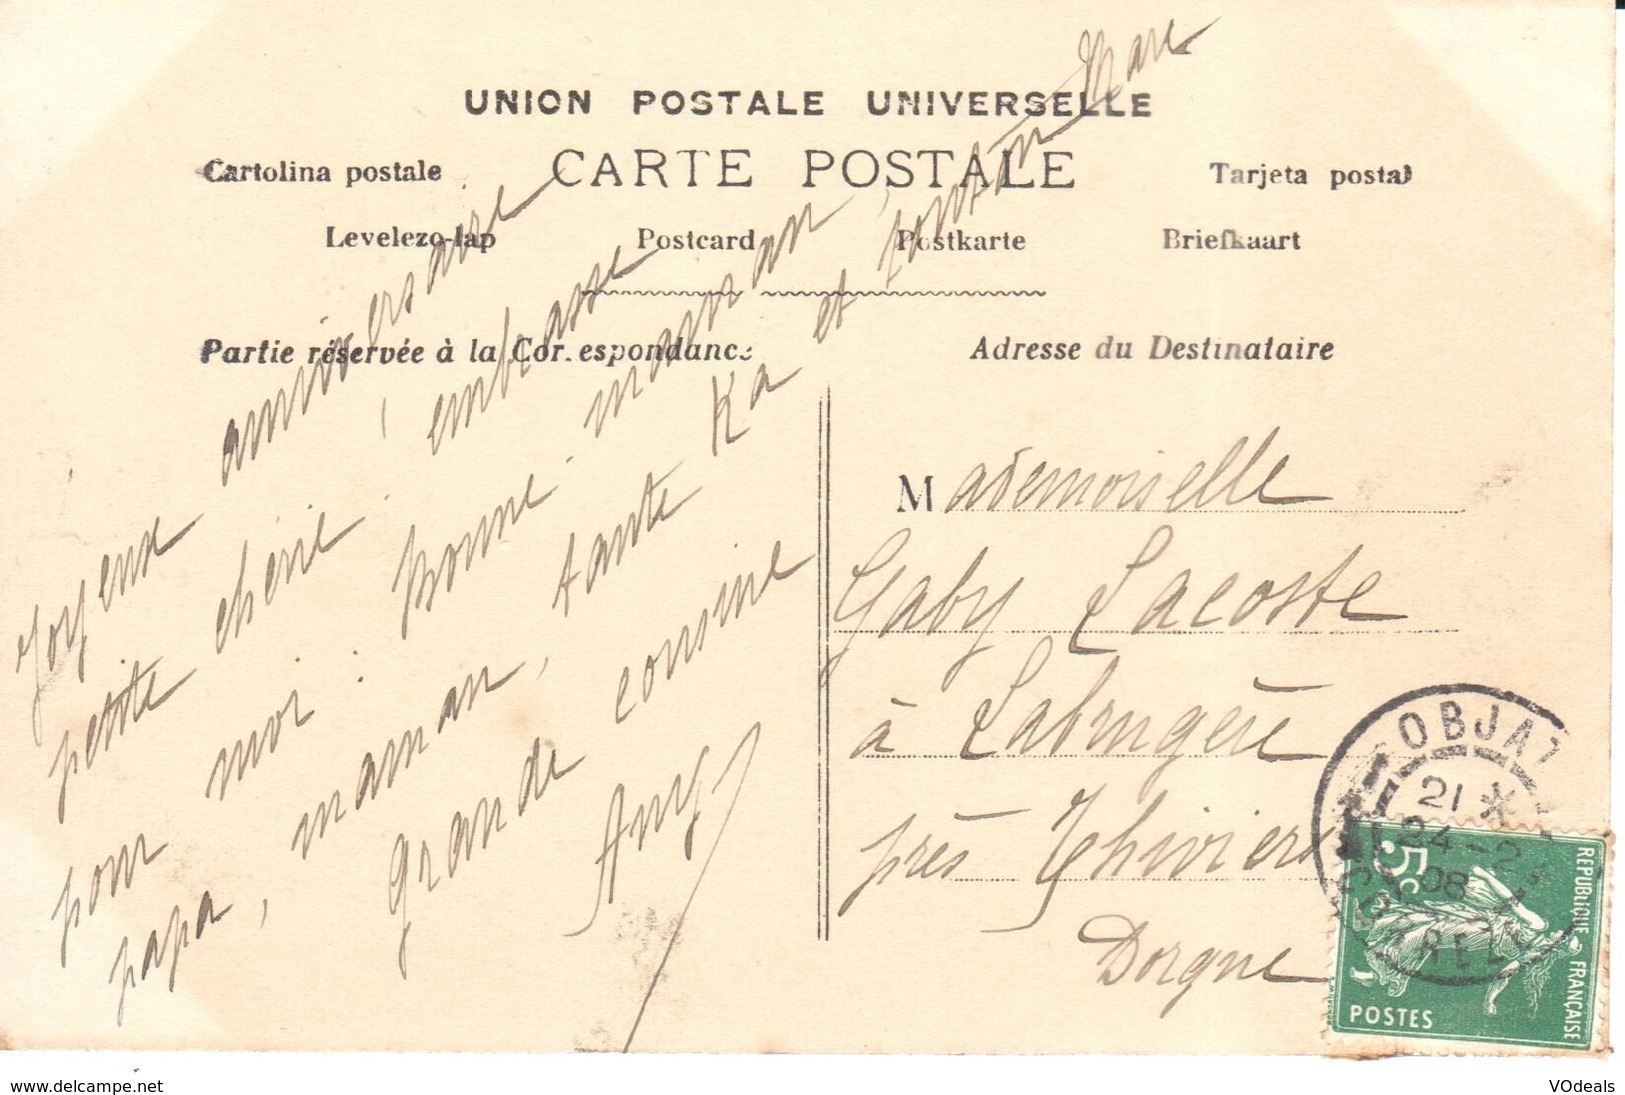 UNION POSTALE UNIVERSELLE
Cartolina postale CARTE POSTALE Tarjeta postal
Levelezo-lap Postcard Postkarte Briefkaart
Partie réservée à la Correspondance
Adresse du Destinataire
Joyeux anniversaire
petite chérie ! embrasse
pour moi : bonne maman,
papa, maman, tante Ka et tonton Marc
grande cousine
Any
Mademoiselle
Gaby Lacoste
à Labrugère
près Thiviers
Dordogne
OBJAT
21 *
24 - 2
08
CORREZE
5c
REPUBLIQUE FRANÇAISE
POSTES
www.delcampe.net
VOdeals